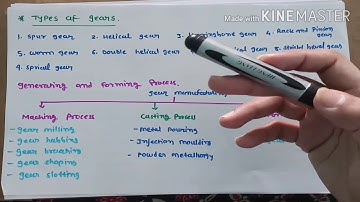 Made with KINEMASTER
* Types of gears.
1. spur gear 2. Helical gear 3. gear 4. Rack and Pinion gear
5. worm gear 6. Double helical gear 8. bevel gear
9. spiral gear
Generating and Forming Process.
gear manufacturing
Machining Process Casting Process
- Gear milling - Metal Pouring
- Gear hobbing - Injection moulding
- Gear broaching - Powder metallurgy
- Gear shaping
- Gear slotting